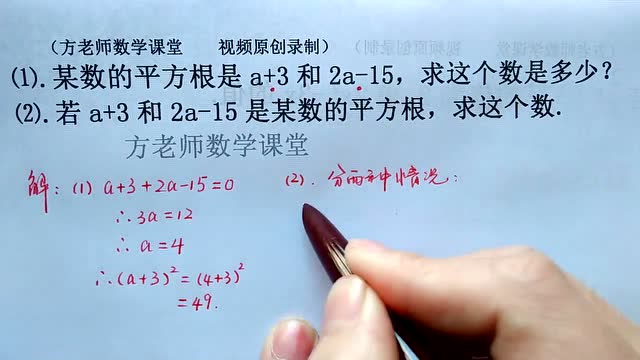 （方老师数学课堂 视频原创录制）
⑴. 某数的平方根是 a+3 和 2a-15，求这个数是多少？
⑵. 若 a+3 和 2a-15 是某数的平方根，求这个数.
方老师数学课堂
解：(1) a+3+2a-15=0
∴3a=12
∴ a=4
∴(a+3)²=(4+3)²
=49.
(2). 分两种情况：